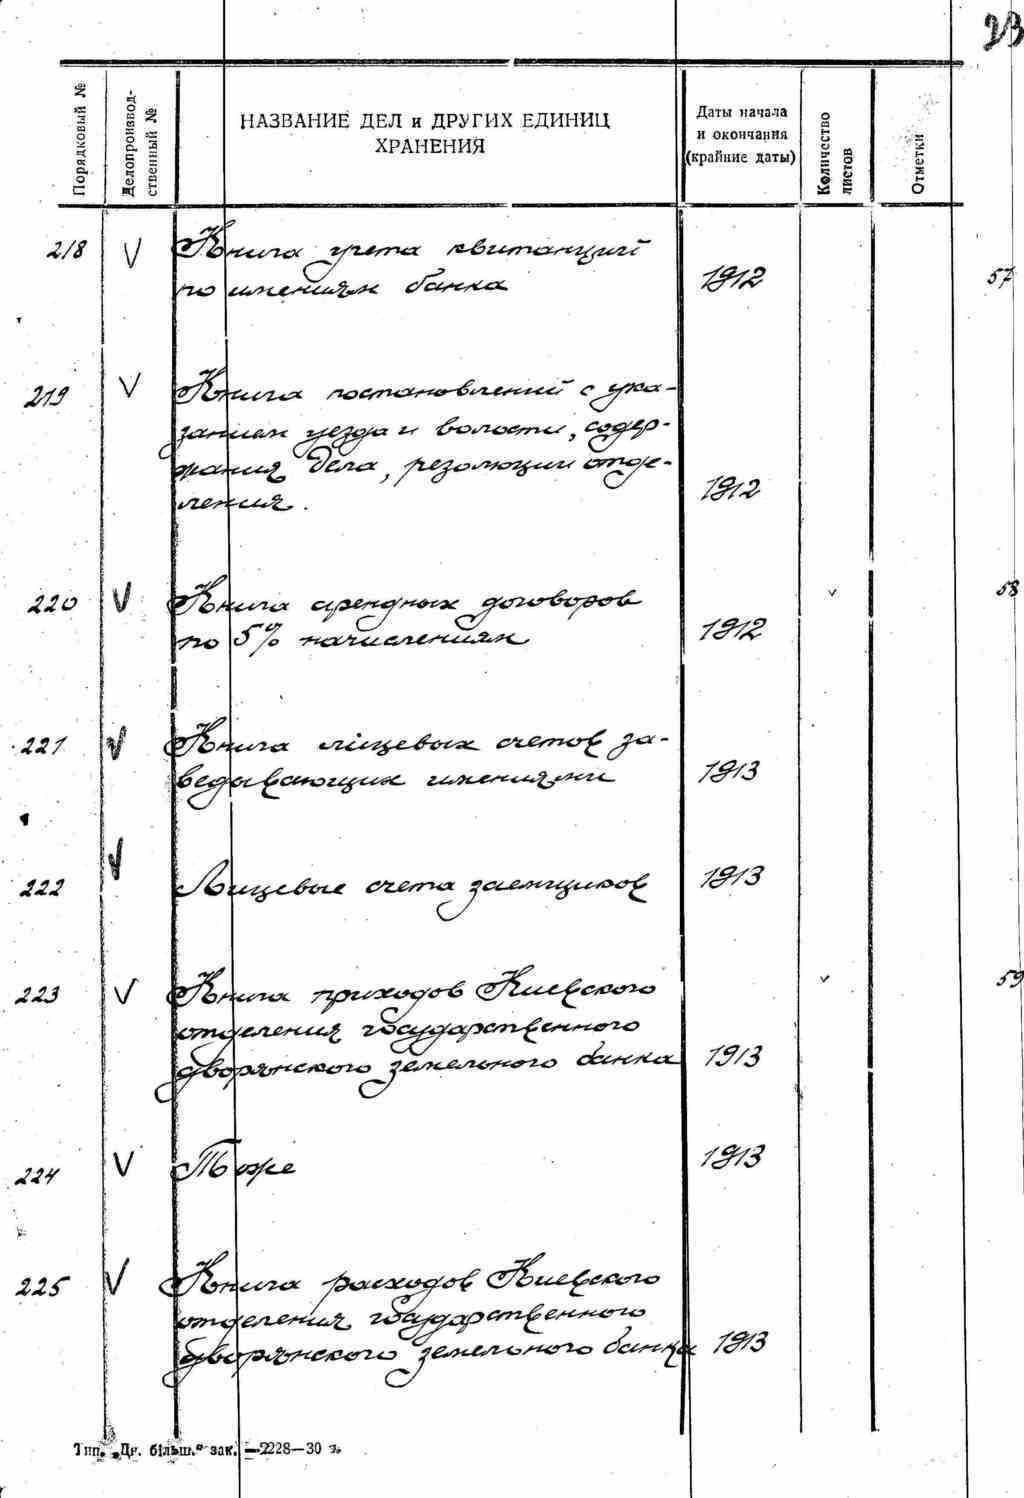 23
Порядковый №
Делопроизвод-
ственный №
НАЗВАНИЕ ДЕЛ и ДРУГИХ ЕДИНИЦ
ХРАНЕНИЯ
Даты начала
и окончания
(крайние даты)
Количество
листов
Отметки
218 V Книга учета квитанций
по имениям банка 1912 57
219 V Книга постановлений с ука-
занием уезда и волости, содер-
жания дела, резолюции отде-
ления. 1912
220 V Книга арендных договоров 58
по 5% начислениям 1912
221 V Книга лицевых счетов за-
ведывающих имениями 1913
222 V Лицевые счета заемщиков 1913
223 V Книга приходов Киевского 59
отделения государственного
дворянского земельного банка 1913
224 V Тоже 1913
225 V Книга расходов Киевского
отделения государственного
дворянского земельного банка 1913
Тип. „Др. більш.“ зак. —2228—30 т.